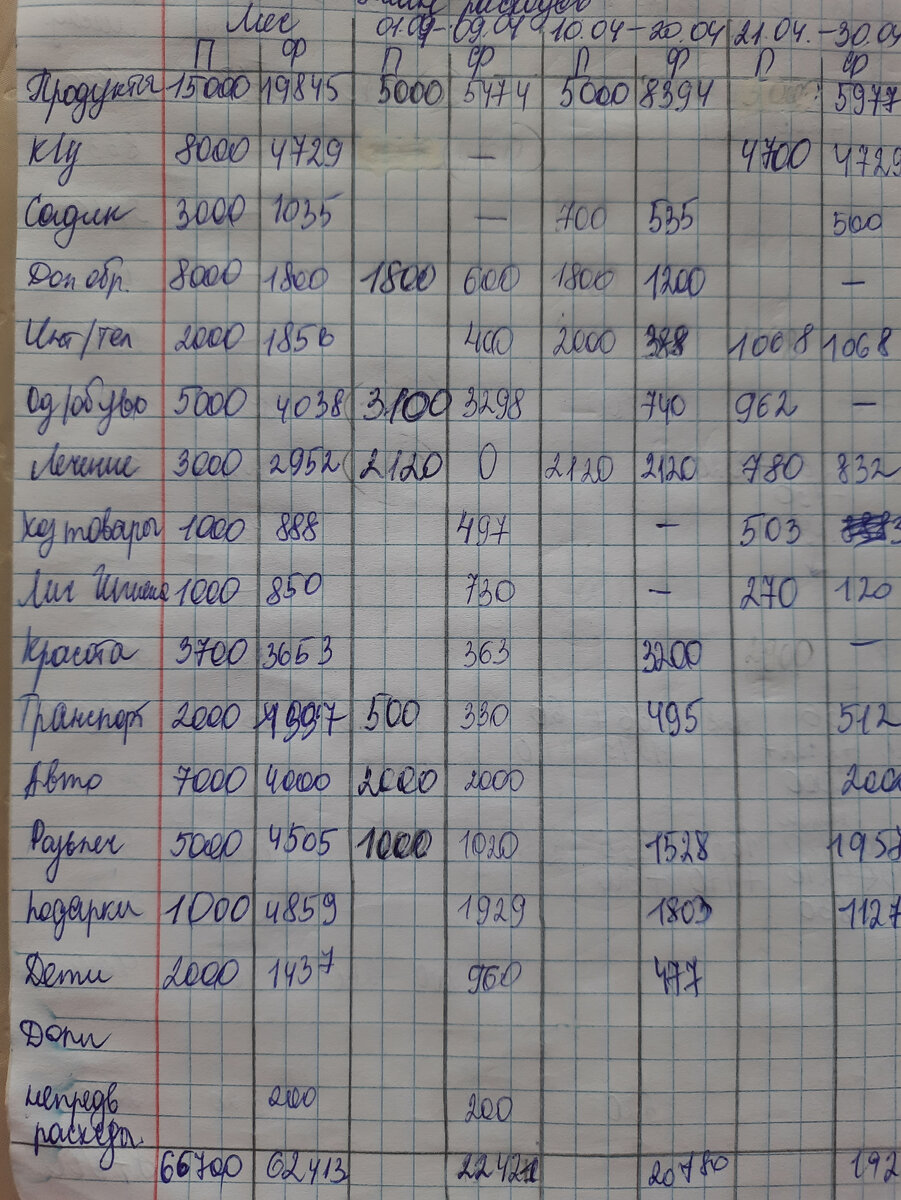 расходов
Мес 01.04-09.04 10.04-20.04 21.04.-30.04
П Ф П Ф П Ф П Ф
Продукты 15000 19845 5000 5474 5000 8394 5977
К/у 8000 4729 — 4700 4729
Садик 3000 1035 — 700 535 500
Доп обр. 8000 1800 1800 600 1800 1200 —
Инт/тел 2000 1856 400 2000 388 1068 1068
Од/обувь 5000 4038 3100 3298 740 962 —
Лечение 3000 2952 2120 0 2120 2120 780 832
Хоз товары 1000 888 497 — 503
Лич Гигиена 1000 850 730 — 270 120
Красота 3700 3653 363 3200 —
Транспорт 2000 1337 500 330 495 512
Авто 7000 4000 2000 2000 200
Развлеч 5000 4505 1000 1020 1528 1957
Подарки 1000 4859 1929 1803 1127
Дети 2000 1437 960 477
Долги
непредв 200 200
расходы
66700 62413 22421 20780 192